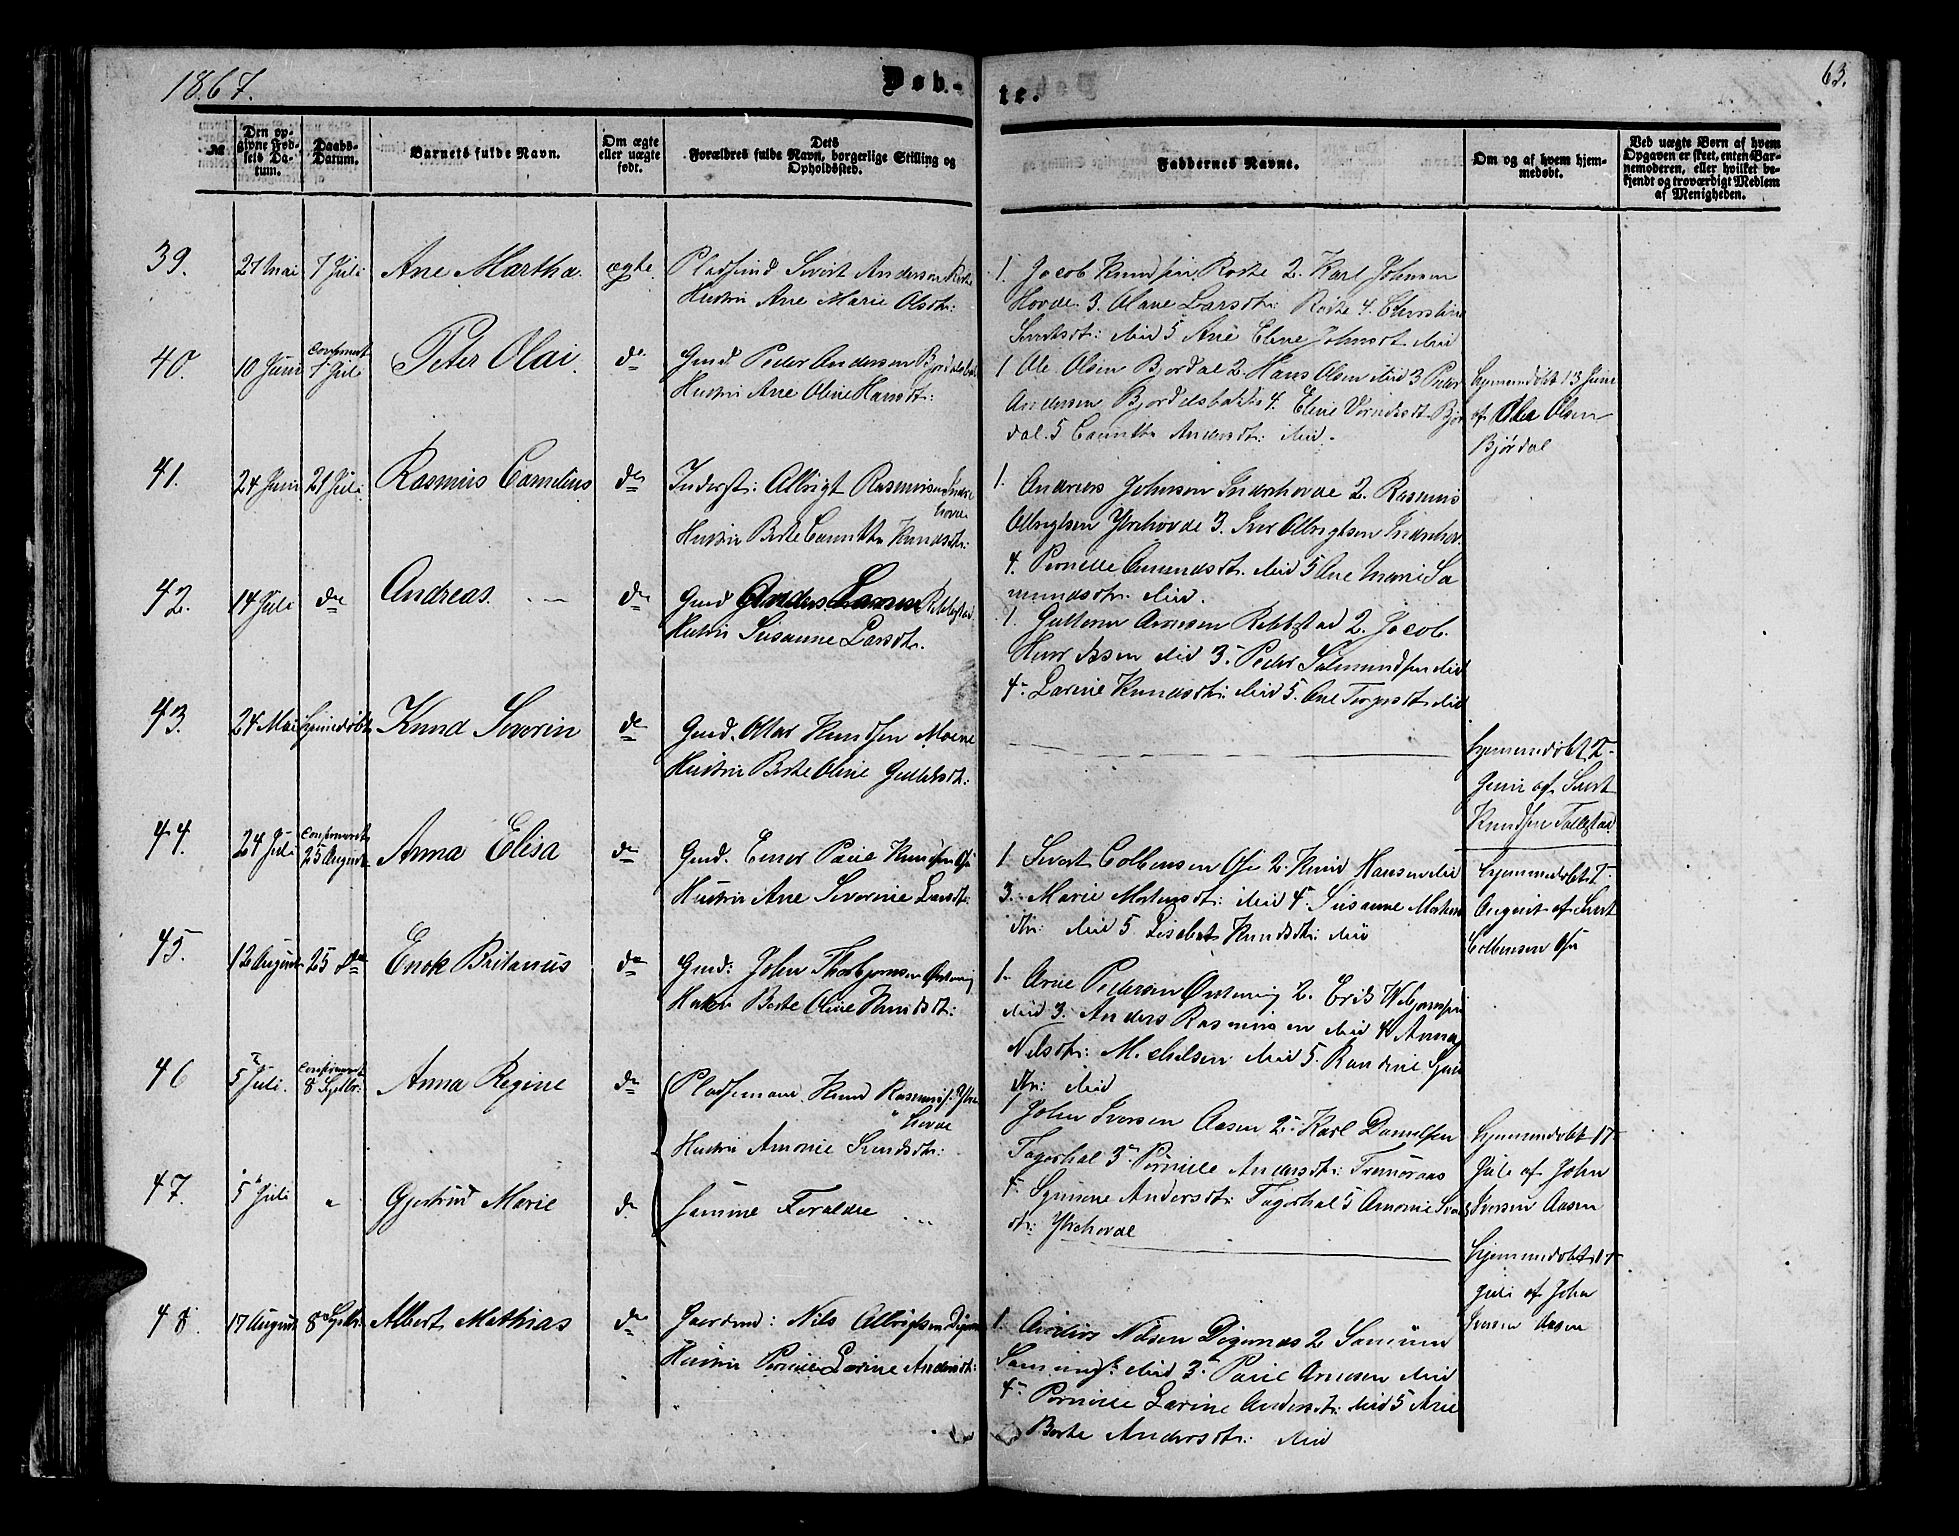 1867.
Døb-
te.
63.
№
Den op-
givne Fød-
sels Da-
tum.
Daabs-
Datum.
Barnets fulde Navn.
Om ægte
eller uægte
født.
Dets
Forældres fulde Navn, borgerlige Stilling og
Opholdssted.
Faddernes Navne.
Om og af hvem hjem-
medøbt.
Ved uægte Børn af hvem
Opgaven er skeet, enten Bar-
nemoderen, eller hvilket be-
kjendt og troværdigt Medlem
af Menigheden.
39.
27 Mai
7 Juli
Ane Martha.
ægte
Pladsmd Sivert Andersen Roste
Hustru Ane Marie Olsdtr:
1. Jacob Knudsen Roste 2. Karl Johnsen
Hovde. 3. Olane Larsdtr: Roste 4.
Sivertsdtr: ibid 5 Ane Eline Johnsdt ibid
40.
10 Juni
Confirmeret
7 Juli
Peter Olai.
do
Gmd. Peder Andersen Bjørdalsbak
Hustru Ane Oline Hansdtr:
1 Ole Olsen Bjørdal 2. Hans Olsen ibid 3 Peder
Andersen Bjørdalsbakk 4. Eline Bjør
dal. 5 Andersdtr: ibid.
hjemmedøbt 13 Juni
af Ole Olsen
Bjørdal
41.
24 Juni
21 Juli
Rasmus Cornelius
do
Inderst: Albrigt Rasmussen Indre
hovde
Hustru Berte Knudsdtr:
1. Andreas Johnsen Indrehovde 2. Rasmus
Albrigtsen Ytrehovde 3. Iver Albrigtsen Indrehov.
4. Pernille Amundsdtr. ibid 5 Ane Marie Sa
mundsdtr. ibid.
42.
14 Juli
do
Andreas.
do
Gmd Anders Larsen Rebbestad
Hustru Susanne Larsdtr.
1. Guttorm Arnesen Rebbestad 2. Jacob
ibid 3. Peder Salomondsen ibid
4. Larine Knudsdtr: ibid 5. Ane ibid
43.
24 Mai
hjemmedøbt
Knud Severin
do
Gmd. Knudsen Moene
Hustru Berte Oline
hjemmedøbt 2
Juni af Sivert
Knudsen
44.
24 Juli
Confirmeret
25 August
Anna Elisa
do
Gmd. Knudsen Øie
Hustru Ane Severine Larsdt:
1 Sivert Colbensen Øie 2. Knud Hansen ibid
3. Marie Mortensdt: ibid 4. Susanne Morten
dtr: ibid 5 Lisebet Knudsdtr: ibid
hjemmedøbt
August af Sivert
Colbensen Øie
45.
12 August
25 do
Enok Britanus
do
Gmd: John Thorbjørnsen
Hustru Berte Oline Knudsdt:
1. Arne Pedersen 2. Erik
ibid 3. Anders Rasmussen ibid 4 Anna
Nilsdtr: ibid 5. Randine
dtr: ibid
46
5 Juli.
Confirmeret
8 Septbr:
Anna Regine
do
Pladsmand. Knud Rasmuss: Ytre
hovde
Hustru Amonie
1 John Iversen Aasen 2. Karl Danielsen
Fagerhol 3. Pernille Andersdtr:
4. Andersdtr: Fagerhol 5 Amonie
dt: Ytrehovde
hjemmedøbt 17
Juli af John
Iversen Aasen
47.
5 Juli
"
Gjertrud Marie
do
Samme Forældre
hjemmedøbt 17
Juli af John
Iversen Aasen
48.
17 August
8 Septbr.
Albert Mathias
do
Gaardmd: Nils Albrigtsen Digernes
Hustru Pernille Larine Andersdt:
1. Anders Nilsen Digernes 2
ibid 3. Arnesen ibid
4. Pernille Larine Andersdt: ibid 5 Ane
Berte Andersdtr: ibid